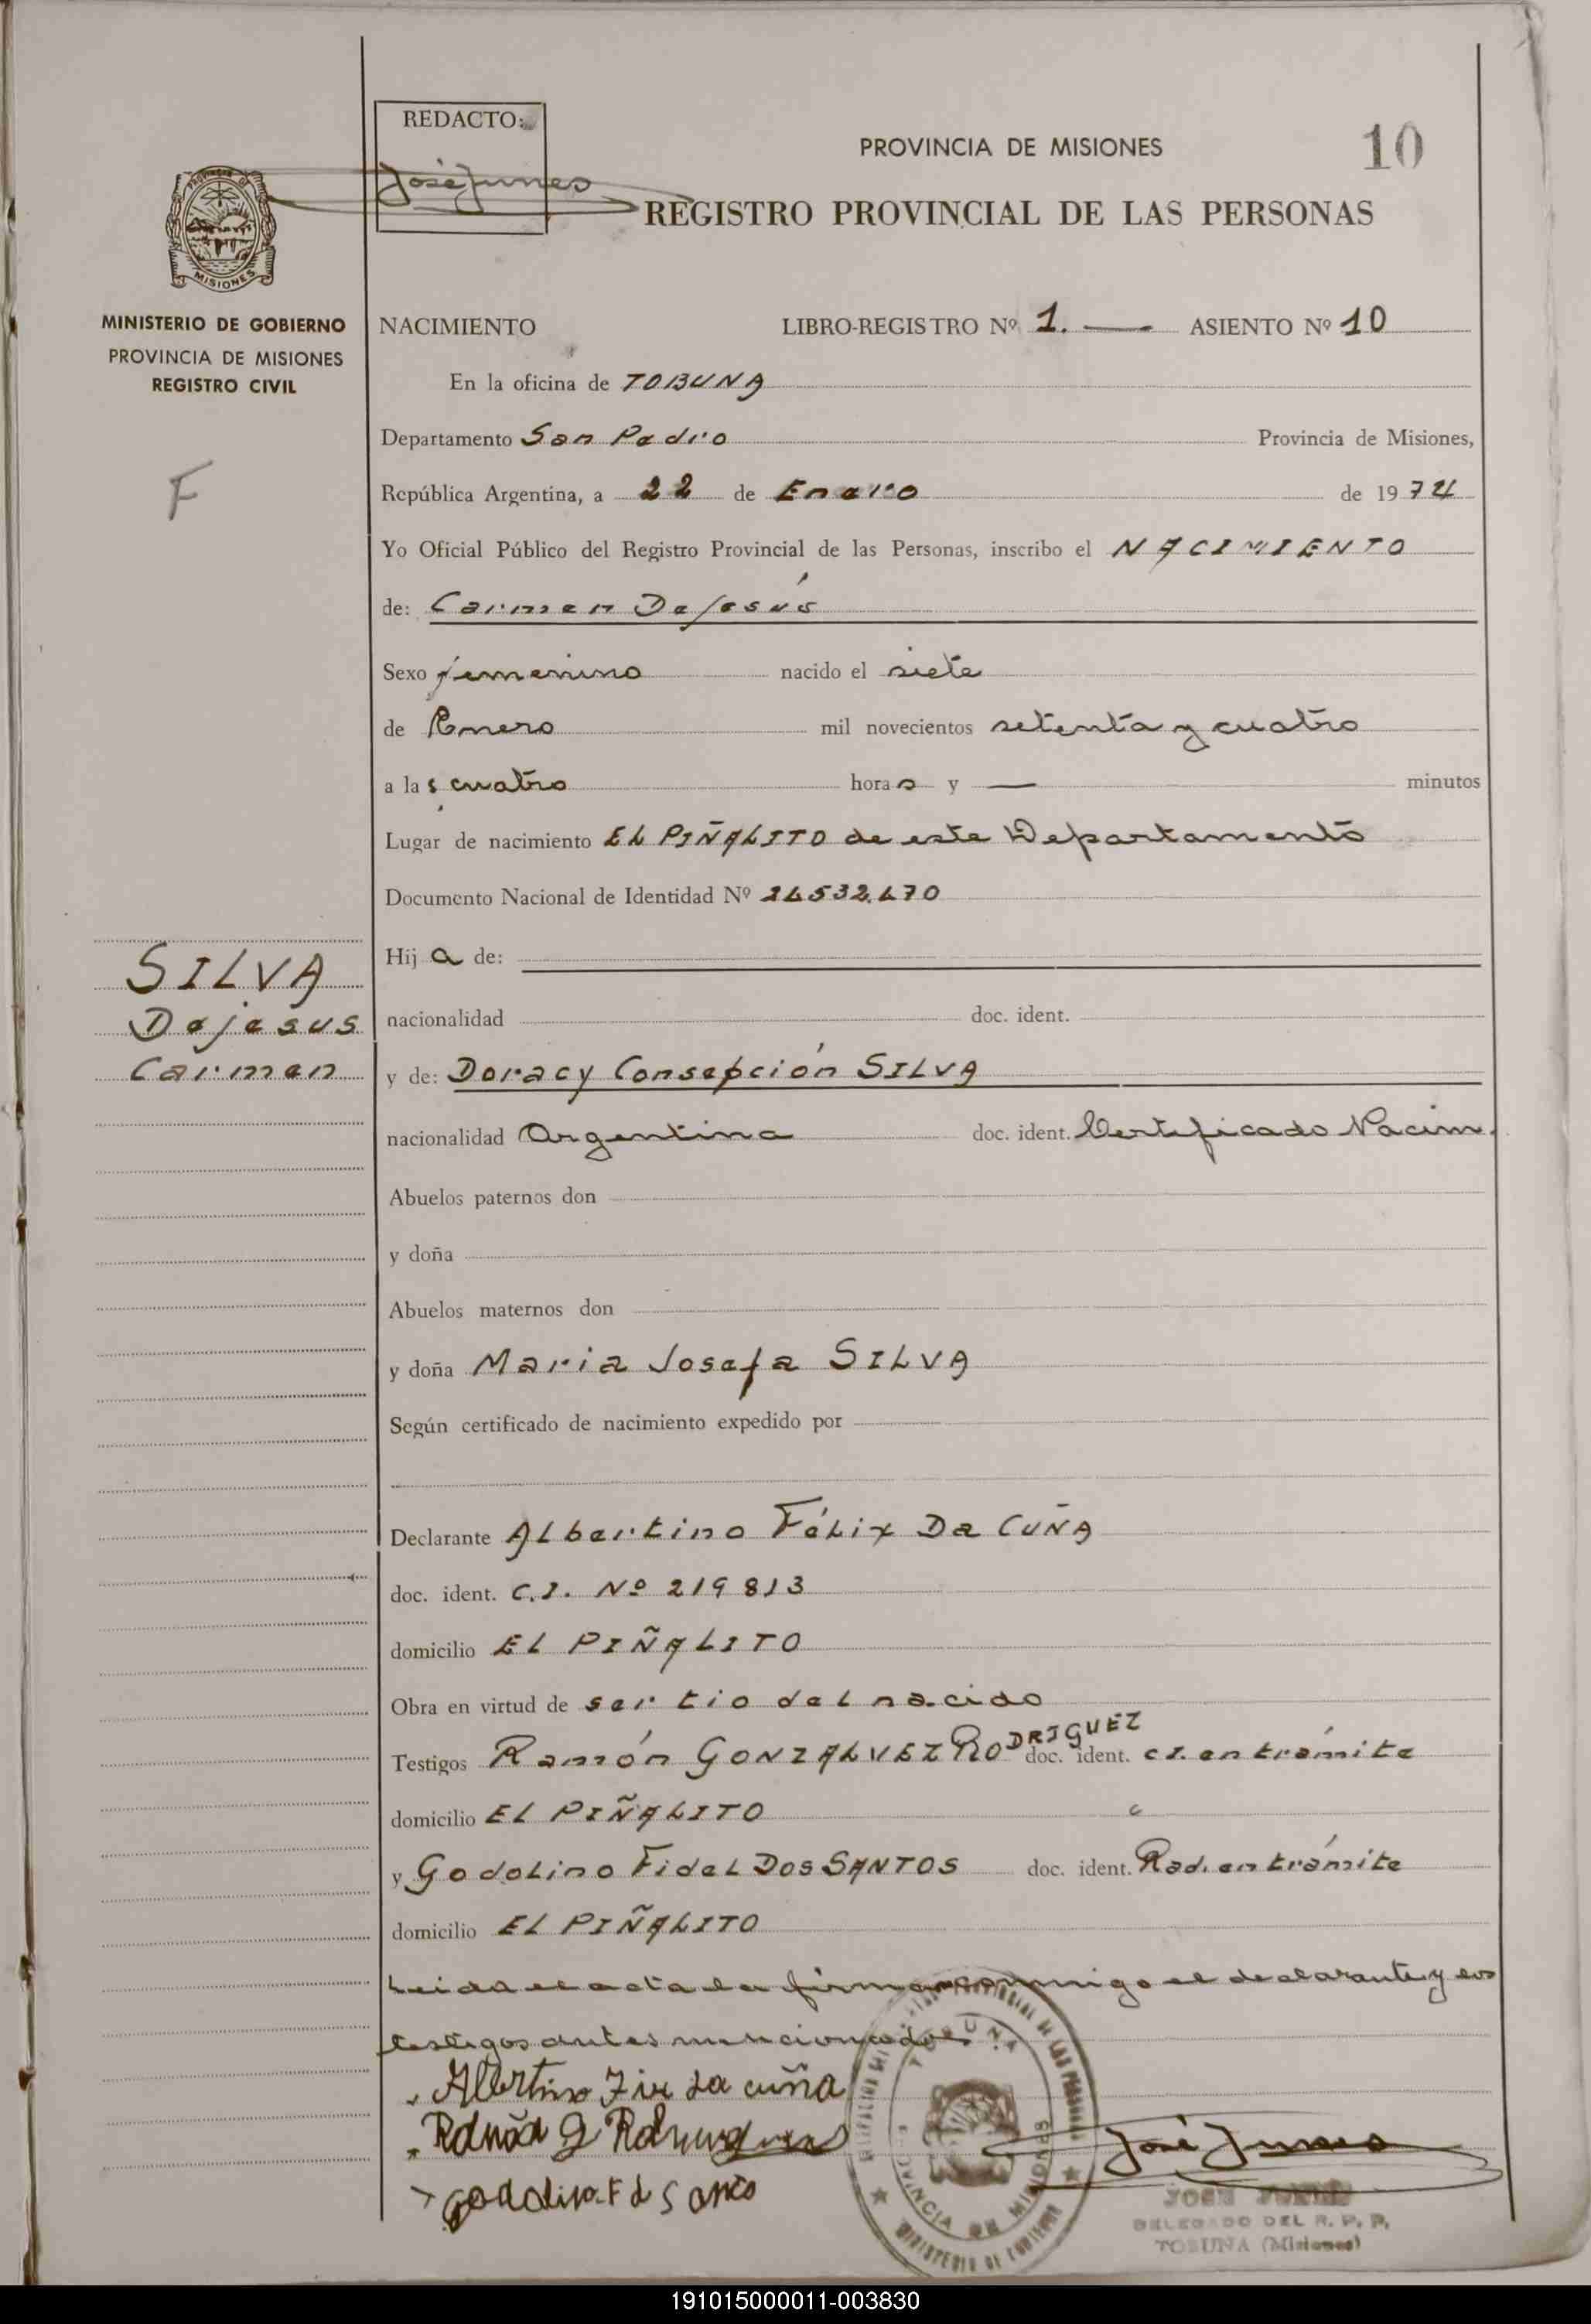 REDACTO:
José Junes
PROVINCIA DE MISIONES
10
REGISTRO PROVINCIAL DE LAS PERSONAS
MISIONES
MINISTERIO DE GOBIERNO
PROVINCIA DE MISIONES
REGISTRO CIVIL
F
NACIMIENTO LIBRO-REGISTRO Nº 1. — ASIENTO Nº 10
En la oficina de TOBUNA
Departamento San Pedro Provincia de Misiones,
República Argentina, a 22 de Enero de 1974
Yo Oficial Público del Registro Provincial de las Personas, inscribo el NACIMIENTO
de: Carmen Dejesús
Sexo femenino nacido el siete
de Enero mil novecientos setenta y cuatro
a las cuatro horas y — minutos
Lugar de nacimiento EL PIÑALITO de este Departamento
Documento Nacional de Identidad Nº
SILVA
Dejesus
Carmen
Hija de:
nacionalidad doc. ident.
y de: Doracy Consepción SILVA
nacionalidad Argentina doc. ident. Certificado Nacim.
Abuelos paternos don
y doña
Abuelos maternos don
y doña Maria Josefa SILVA
Según certificado de nacimiento expedido por
Declarante Albertino Félix Da CUÑA
doc. ident. C.I. Nº 219813
domicilio EL PIÑALITO
Obra en virtud de ser tio del nacido
Testigos Ramón GONZALVEZ RODRIGUEZ doc. ident. c.i. en trámite
domicilio EL PIÑALITO
y Godolino Fidel DOS SANTOS doc. ident. Rad. en trámite
domicilio EL PIÑALITO
Leida el acta la firman conmigo el declarante y los
testigos antes mencionados
Albertino da cuña
José Junes
JOSE JUNES
DELEGADO DEL R. P. P.
TOBUNA (Misiones)
PROVINCIA DE MISIONES
MINISTERIO DE GOBIERNO
191015000011-003830